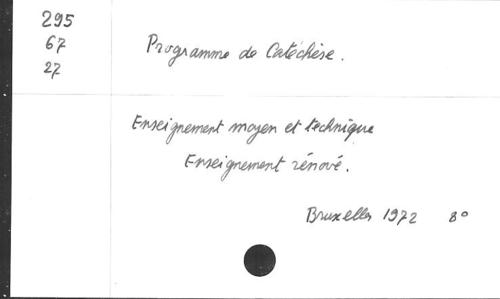 295
67
27
Programme de Catéchèse.
Enseignement moyen et technique
Enseignement rénové.
Bruxelles 1972 8°